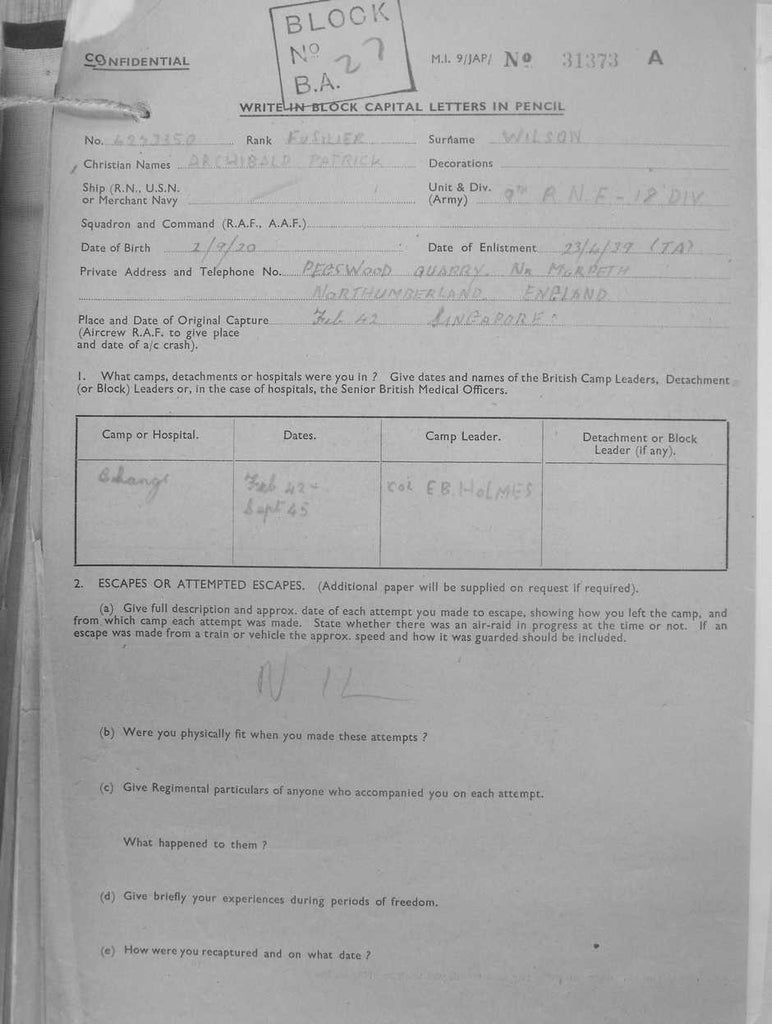 BLOCK
No 27
B.A.
CONFIDENTIAL
M.I. 9/JAP/ No 31373 A
WRITE IN BLOCK CAPITAL LETTERS IN PENCIL
No. Rank FUSILIER Surname WILSON
Christian Names ARCHIBALD PATRICK Decorations
Ship (R.N., U.S.N. or Merchant Navy
Unit & Div. (Army) 9th R.N.F - 18 DIV
Squadron and Command (R.A.F., A.A.F.)
Date of Birth 2/9/20 Date of Enlistment 23/4/39 (TA)
Private Address and Telephone No. PEGSWOOD QUARRY. NR MORPETH
NORTHUMBERLAND ENGLAND
Place and Date of Original Capture Feb 42 SINGAPORE
(Aircrew R.A.F. to give place
and date of a/c crash).
1. What camps, detachments or hospitals were you in ? Give dates and names of the British Camp Leaders, Detachment
(or Block) Leaders or, in the case of hospitals, the Senior British Medical Officers.
Camp or Hospital. Dates. Camp Leader. Detachment or Block
Leader (if any).
Changi Feb 42 - Col EB HOLMES
Sept 45
2. ESCAPES OR ATTEMPTED ESCAPES. (Additional paper will be supplied on request if required).
(a) Give full description and approx. date of each attempt you made to escape, showing how you left the camp, and
from which camp each attempt was made. State whether there was an air-raid in progress at the time or not. If an
escape was made from a train or vehicle the approx. speed and how it was guarded should be included.
NIL
(b) Were you physically fit when you made these attempts ?
(c) Give Regimental particulars of anyone who accompanied you on each attempt.
What happened to them ?
(d) Give briefly your experiences during periods of freedom.
(e) How were you recaptured and on what date ?